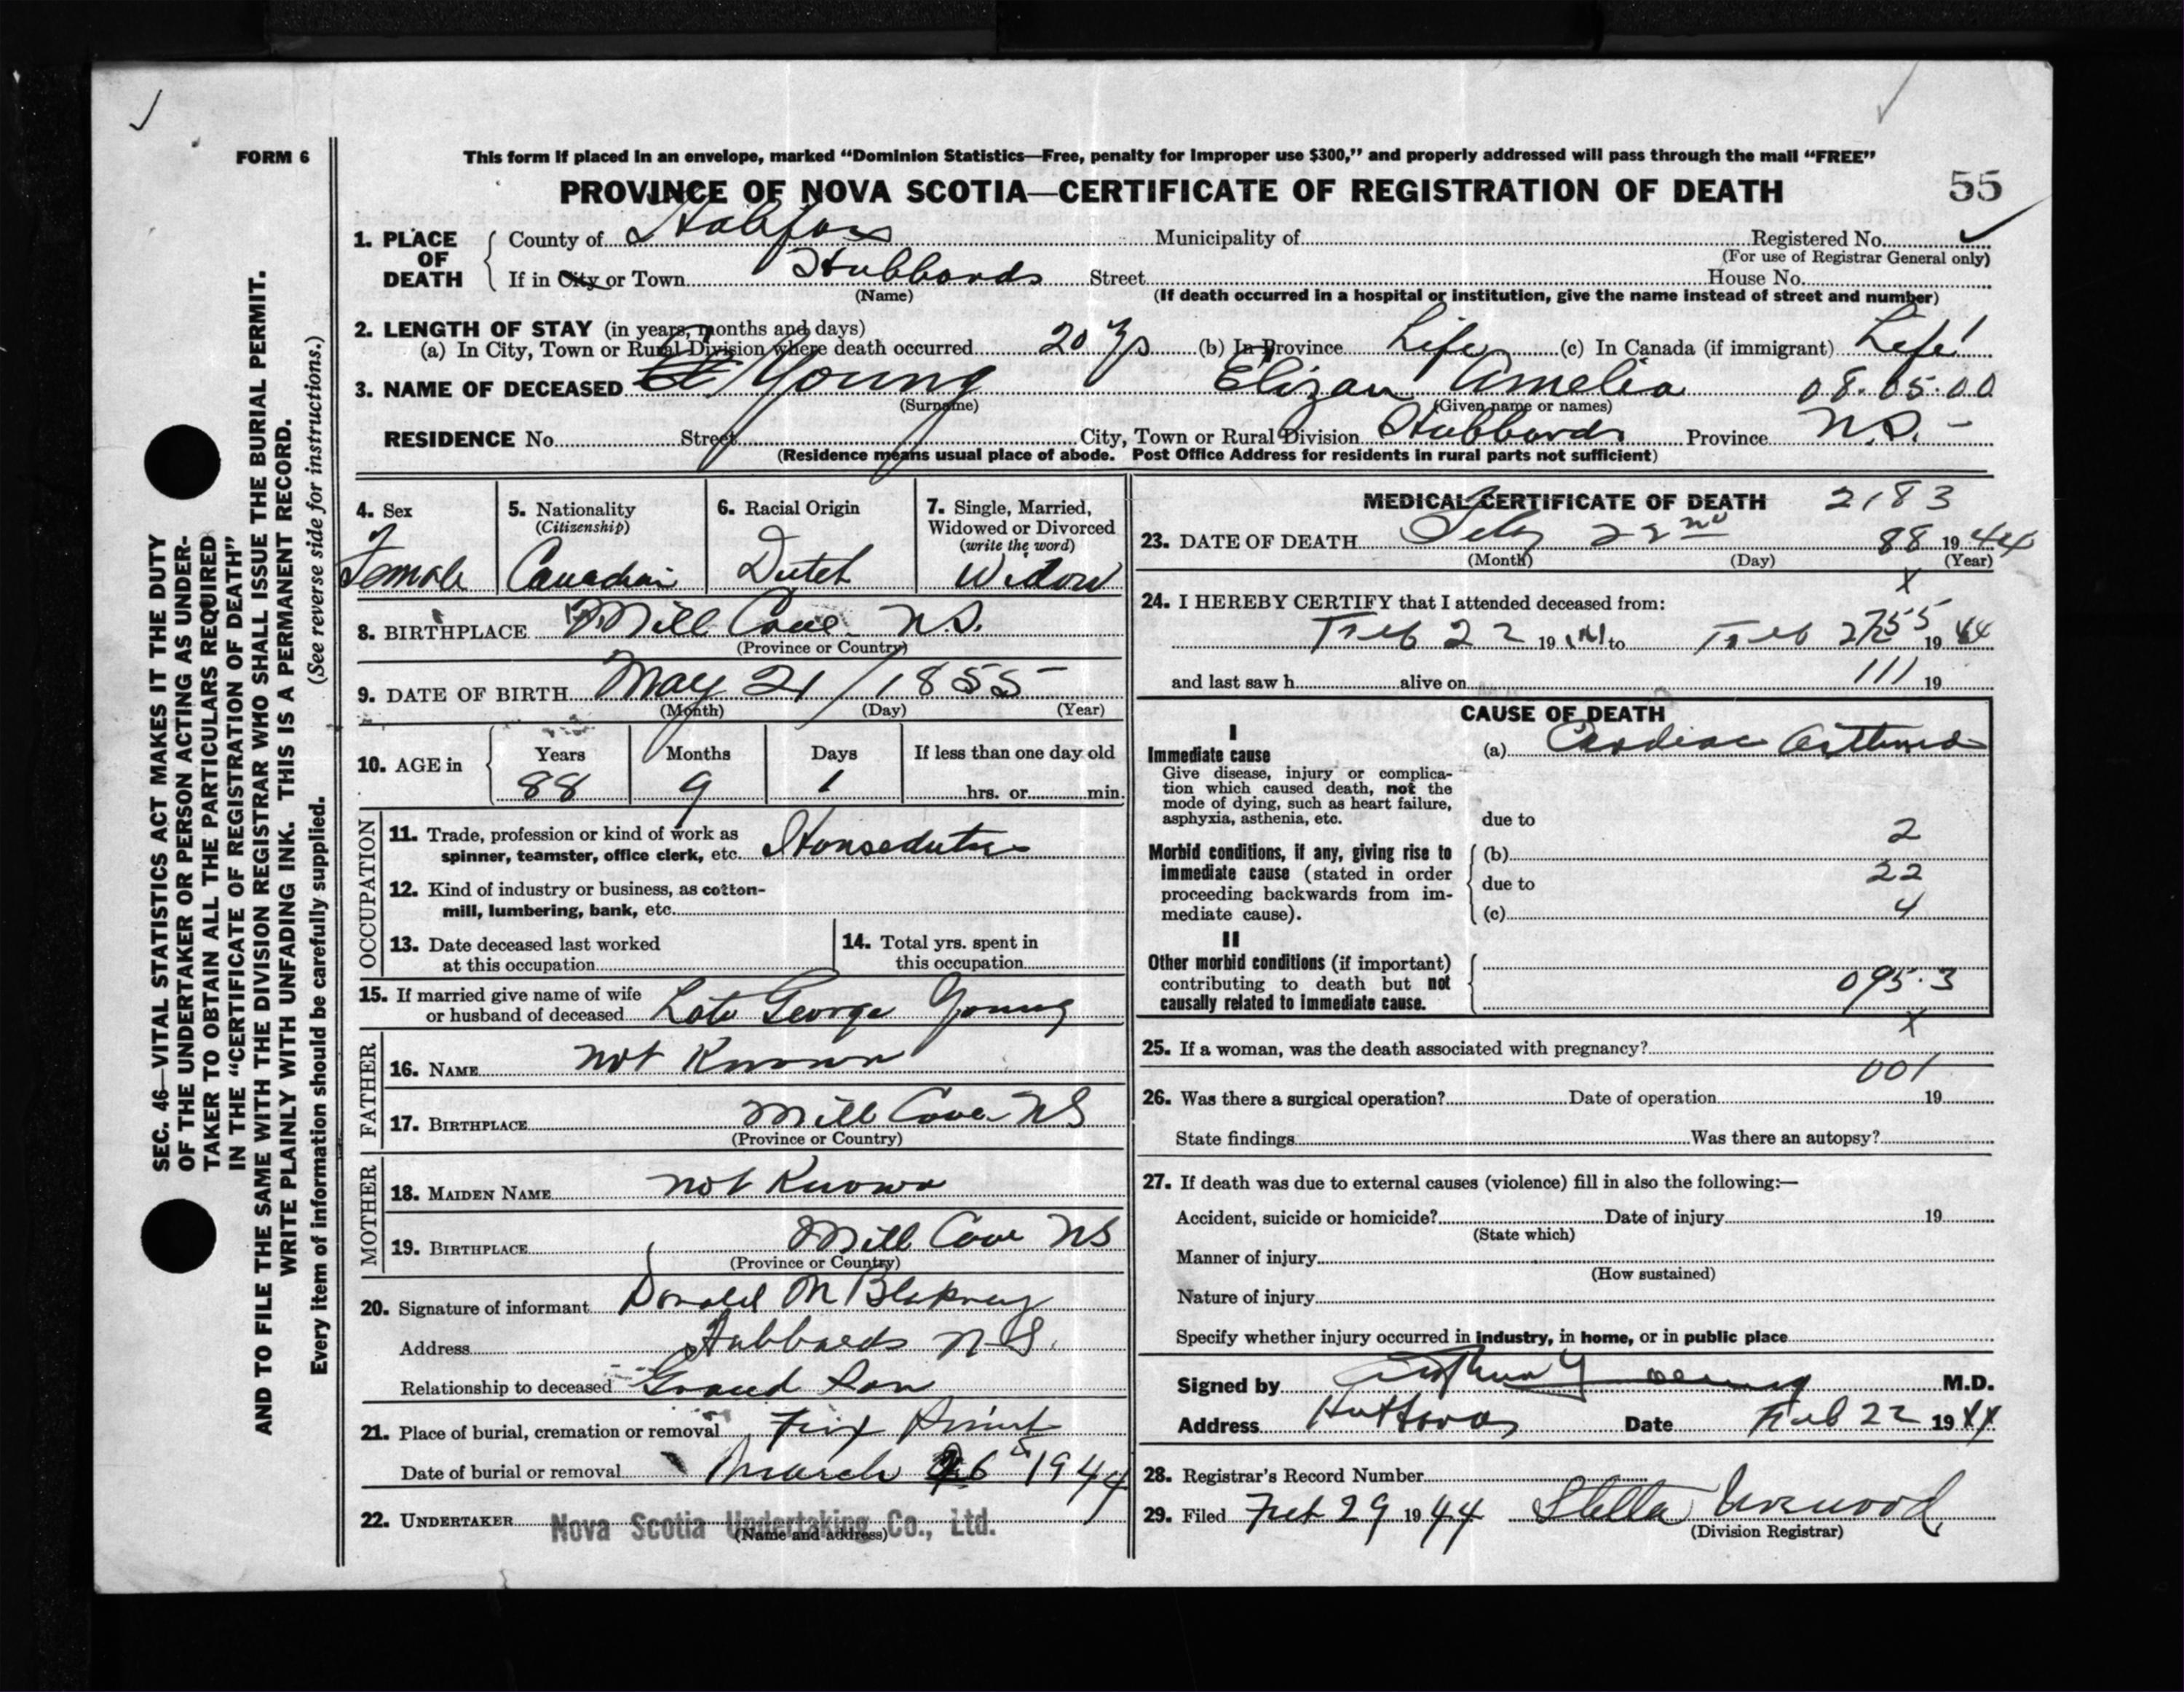 FORM 6
This form if placed in an envelope, marked “Dominion Statistics—Free, penalty for improper use $300,” and properly addressed will pass through the mail “FREE”
PROVINCE OF NOVA SCOTIA—CERTIFICATE OF REGISTRATION OF DEATH 55
1. PLACE OF DEATH
County of Halifax Municipality of Registered No.
(For use of Registrar General only)
If in City or Town Hubbards Street House No.
(Name) (If death occurred in a hospital or institution, give the name instead of street and number)
2. LENGTH OF STAY (in years, months and days)
(a) In City, Town or Rural Division where death occurred 20 (b) In Province Life (c) In Canada (if immigrant) Life
3. NAME OF DECEASED Young Elizan Amelia 08.05.00
(Surname) (Given name or names)
RESIDENCE No. Street City, Town or Rural Division Hubbards Province N.S.
(Residence means usual place of abode. Post Office Address for residents in rural parts not sufficient)
4. Sex
Female
5. Nationality
(Citizenship)
Canadian
6. Racial Origin
Dutch
7. Single, Married,
Widowed or Divorced
(write the word)
Widow
8. BIRTHPLACE Mill Cove N.S.
(Province or Country)
9. DATE OF BIRTH May 21 / 1855
(Month) (Day) (Year)
10. AGE in
Years Months Days If less than one day old
88 9 1 hrs. or min.
OCCUPATION
11. Trade, profession or kind of work as
spinner, teamster, office clerk, etc. Houseduties
12. Kind of industry or business, as cotton-
mill, lumbering, bank, etc.
13. Date deceased last worked
at this occupation
14. Total yrs. spent in
this occupation
15. If married give name of wife
or husband of deceased Late George Young
FATHER
16. NAME not Known
17. BIRTHPLACE Mill Cove NS
(Province or Country)
MOTHER
18. MAIDEN NAME not Known
19. BIRTHPLACE Mill Cove NS
(Province or Country)
20. Signature of informant Donald M Blakney
Address Hubbards N.S.
Relationship to deceased Grand Son
21. Place of burial, cremation or removal Fox Point
Date of burial or removal March 1944
22. UNDERTAKER Nova Scotia Undertaking Co., Ltd.
(Name and address)
MEDICAL CERTIFICATE OF DEATH 2183
23. DATE OF DEATH Feby 22nd 88 1944
(Month) (Day) (Year)
x
24. I HEREBY CERTIFY that I attended deceased from:
Feb 22 19 to Feb 1944
and last saw h alive on 111 19
CAUSE OF DEATH
I
Immediate cause
Give disease, injury or complica-
tion which caused death, not the
mode of dying, such as heart failure,
asphyxia, asthenia, etc.
(a) Cardiac Asthma
due to
2
Morbid conditions, if any, giving rise to
immediate cause (stated in order
proceeding backwards from im-
mediate cause).
(b)
due to 22
(c) 4
II
Other morbid conditions (if important)
contributing to death but not
causally related to immediate cause.
095.3
x
25. If a woman, was the death associated with pregnancy?
001
26. Was there a surgical operation? Date of operation 19
State findings Was there an autopsy?
27. If death was due to external causes (violence) fill in also the following:—
Accident, suicide or homicide? Date of injury 19
(State which)
Manner of injury
(How sustained)
Nature of injury
Specify whether injury occurred in industry, in home, or in public place
Signed by M.D.
Address Date Feb 22 1944
28. Registrar's Record Number
29. Filed Feb 29 1944 Stella
(Division Registrar)
SEC. 46—VITAL STATISTICS ACT MAKES IT THE DUTY
OF THE UNDERTAKER OR PERSON ACTING AS UNDER-
TAKER TO OBTAIN ALL THE PARTICULARS REQUIRED
IN THE “CERTIFICATE OF REGISTRATION OF DEATH”
AND TO FILE THE SAME WITH THE DIVISION REGISTRAR WHO SHALL ISSUE THE BURIAL PERMIT.
WRITE PLAINLY WITH UNFADING INK. THIS IS A PERMANENT RECORD.
Every item of information should be carefully supplied. (See reverse side for instructions.)